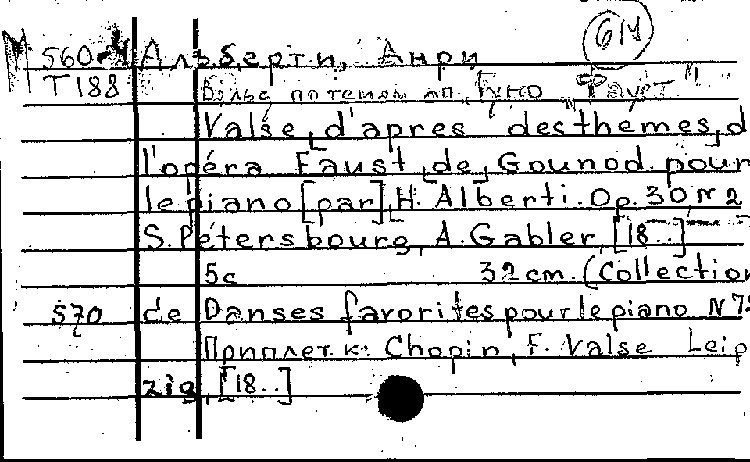 614
М 560-4 Альберти, Анри
Т 188 Вальс по темам оп. Гуно „Фауст"
Valse, d'apres des themes, d
l'opéra Faust, de, Gounod. pour
le piano [par], H. Alberti. Op. 30 № 2
S. Pétersbourg, A. Gabler, [18..]
5c 32 cm. (Collection
570 de Danses favorites pour le piano N 7
Приплет. к: Chopin, F. Valse Leip
zig, [18..]